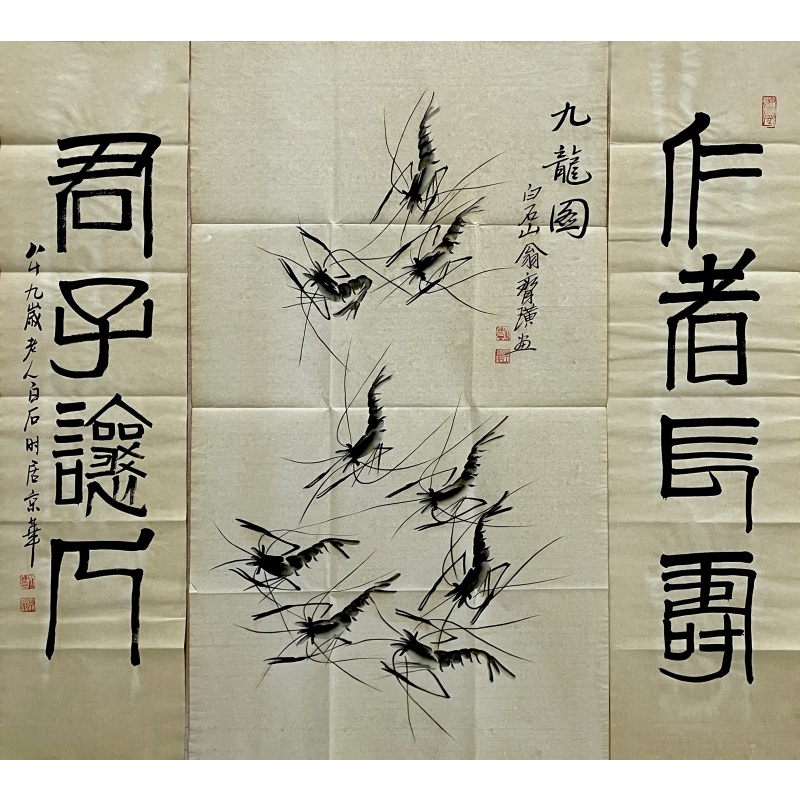 仁者長壽
九龍圖
白石山翁齊璜画
君子讓人
八十九歲老人白石时居京華